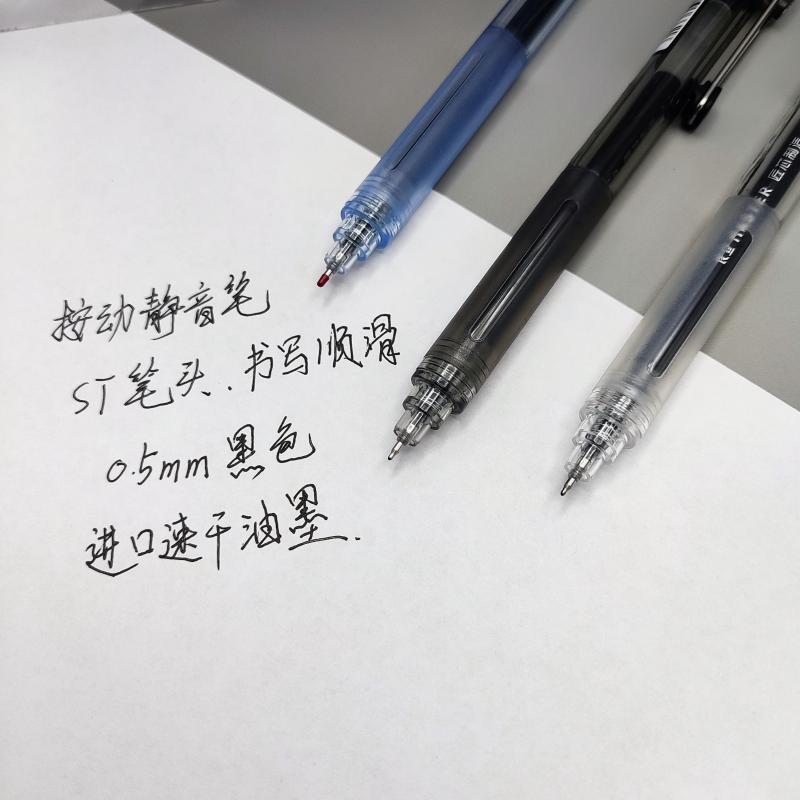 按动静音笔
ST笔头.书写顺滑
0.5mm 黑色
进口速干油墨.
匠芯制造